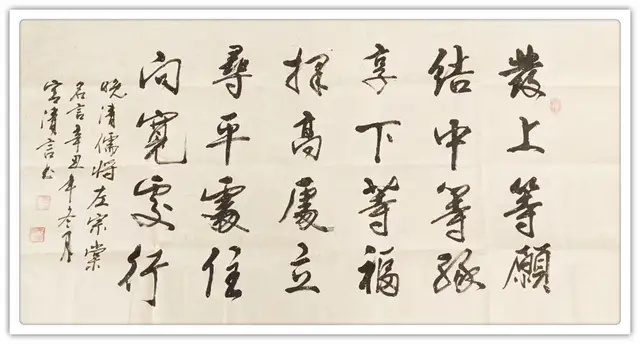 發上等願
結中等緣
享下等福
擇高處立
尋平處住
向寬處行
晚清儒将左宗棠
名言辛丑年冬月
宫清言书